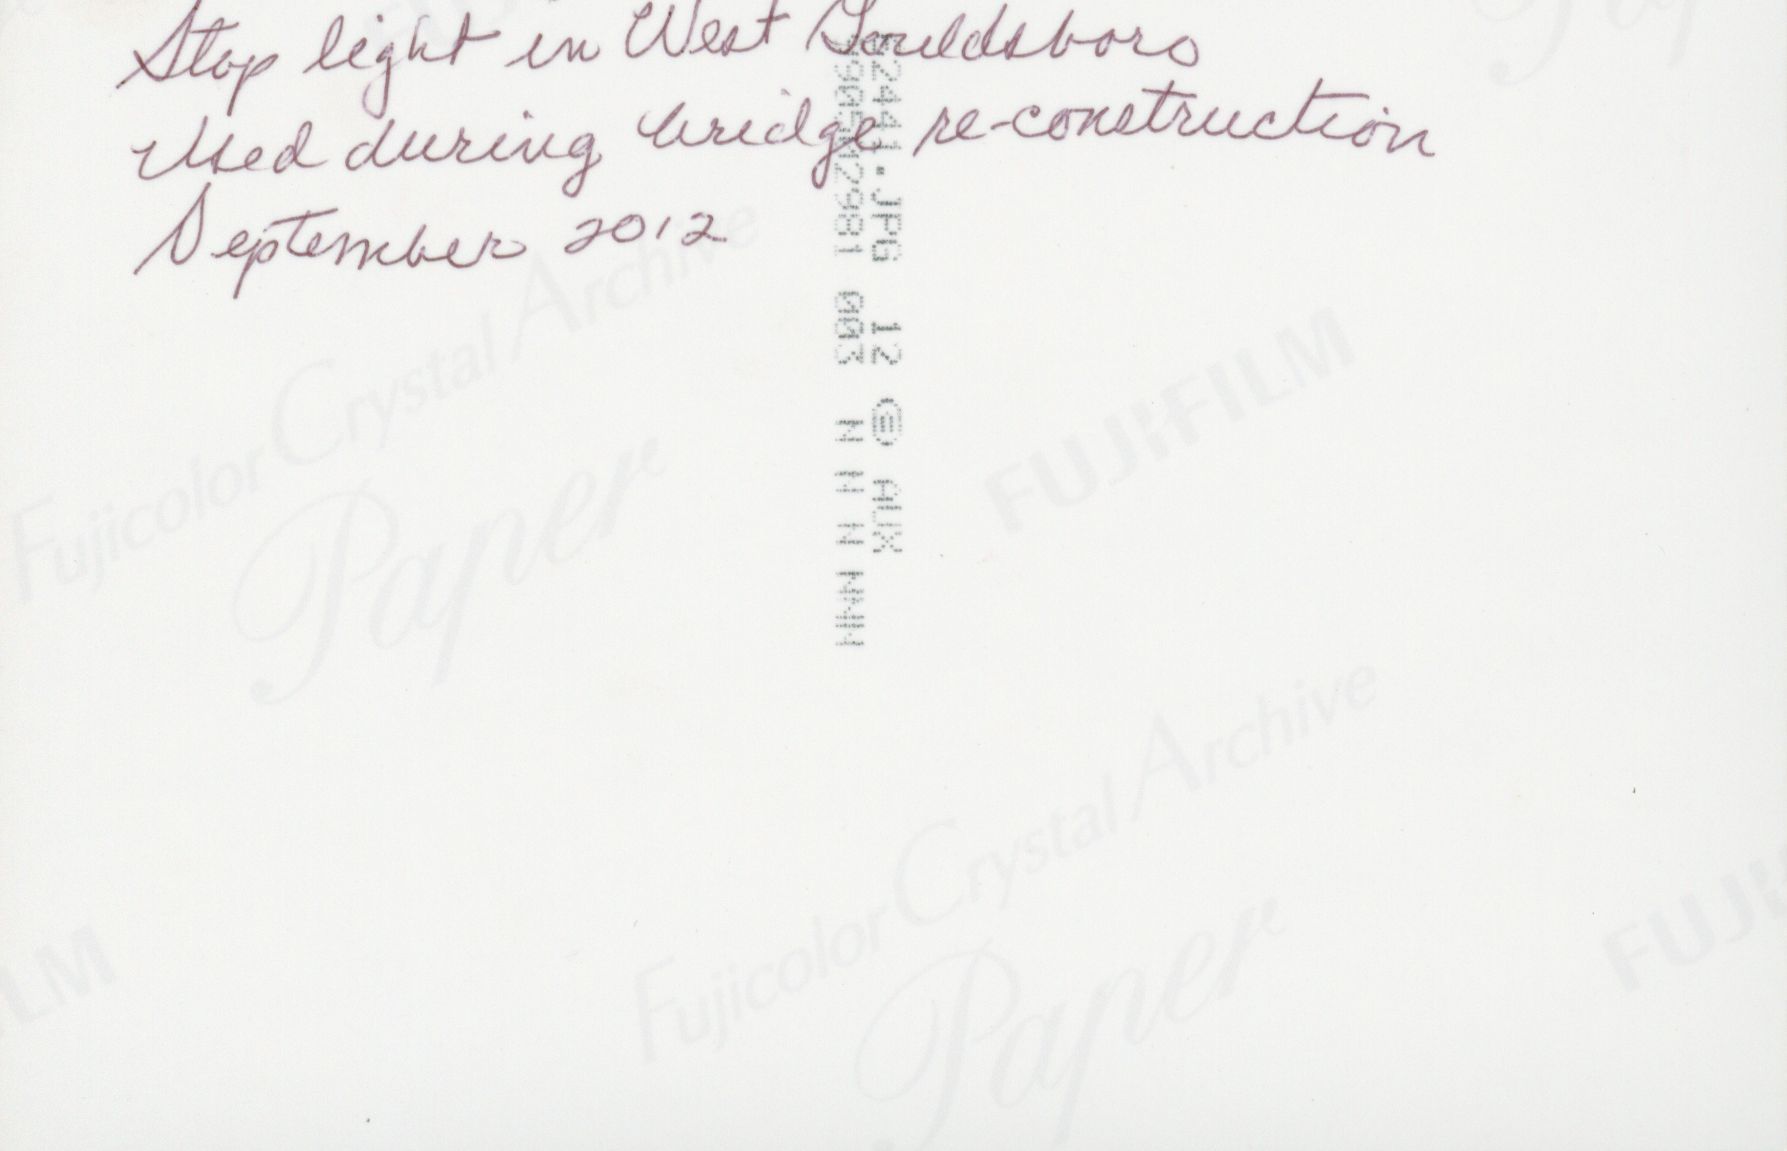 Stop light in West Gouldsboro
Used during bridge re-construction
September 2012
52441.JPG 12 AUX
003 N N N NNN
Fujicolor Crystal Archive
Paper
FUJIFILM
Fujicolor Crystal Archive
Paper
FUJI
ILM